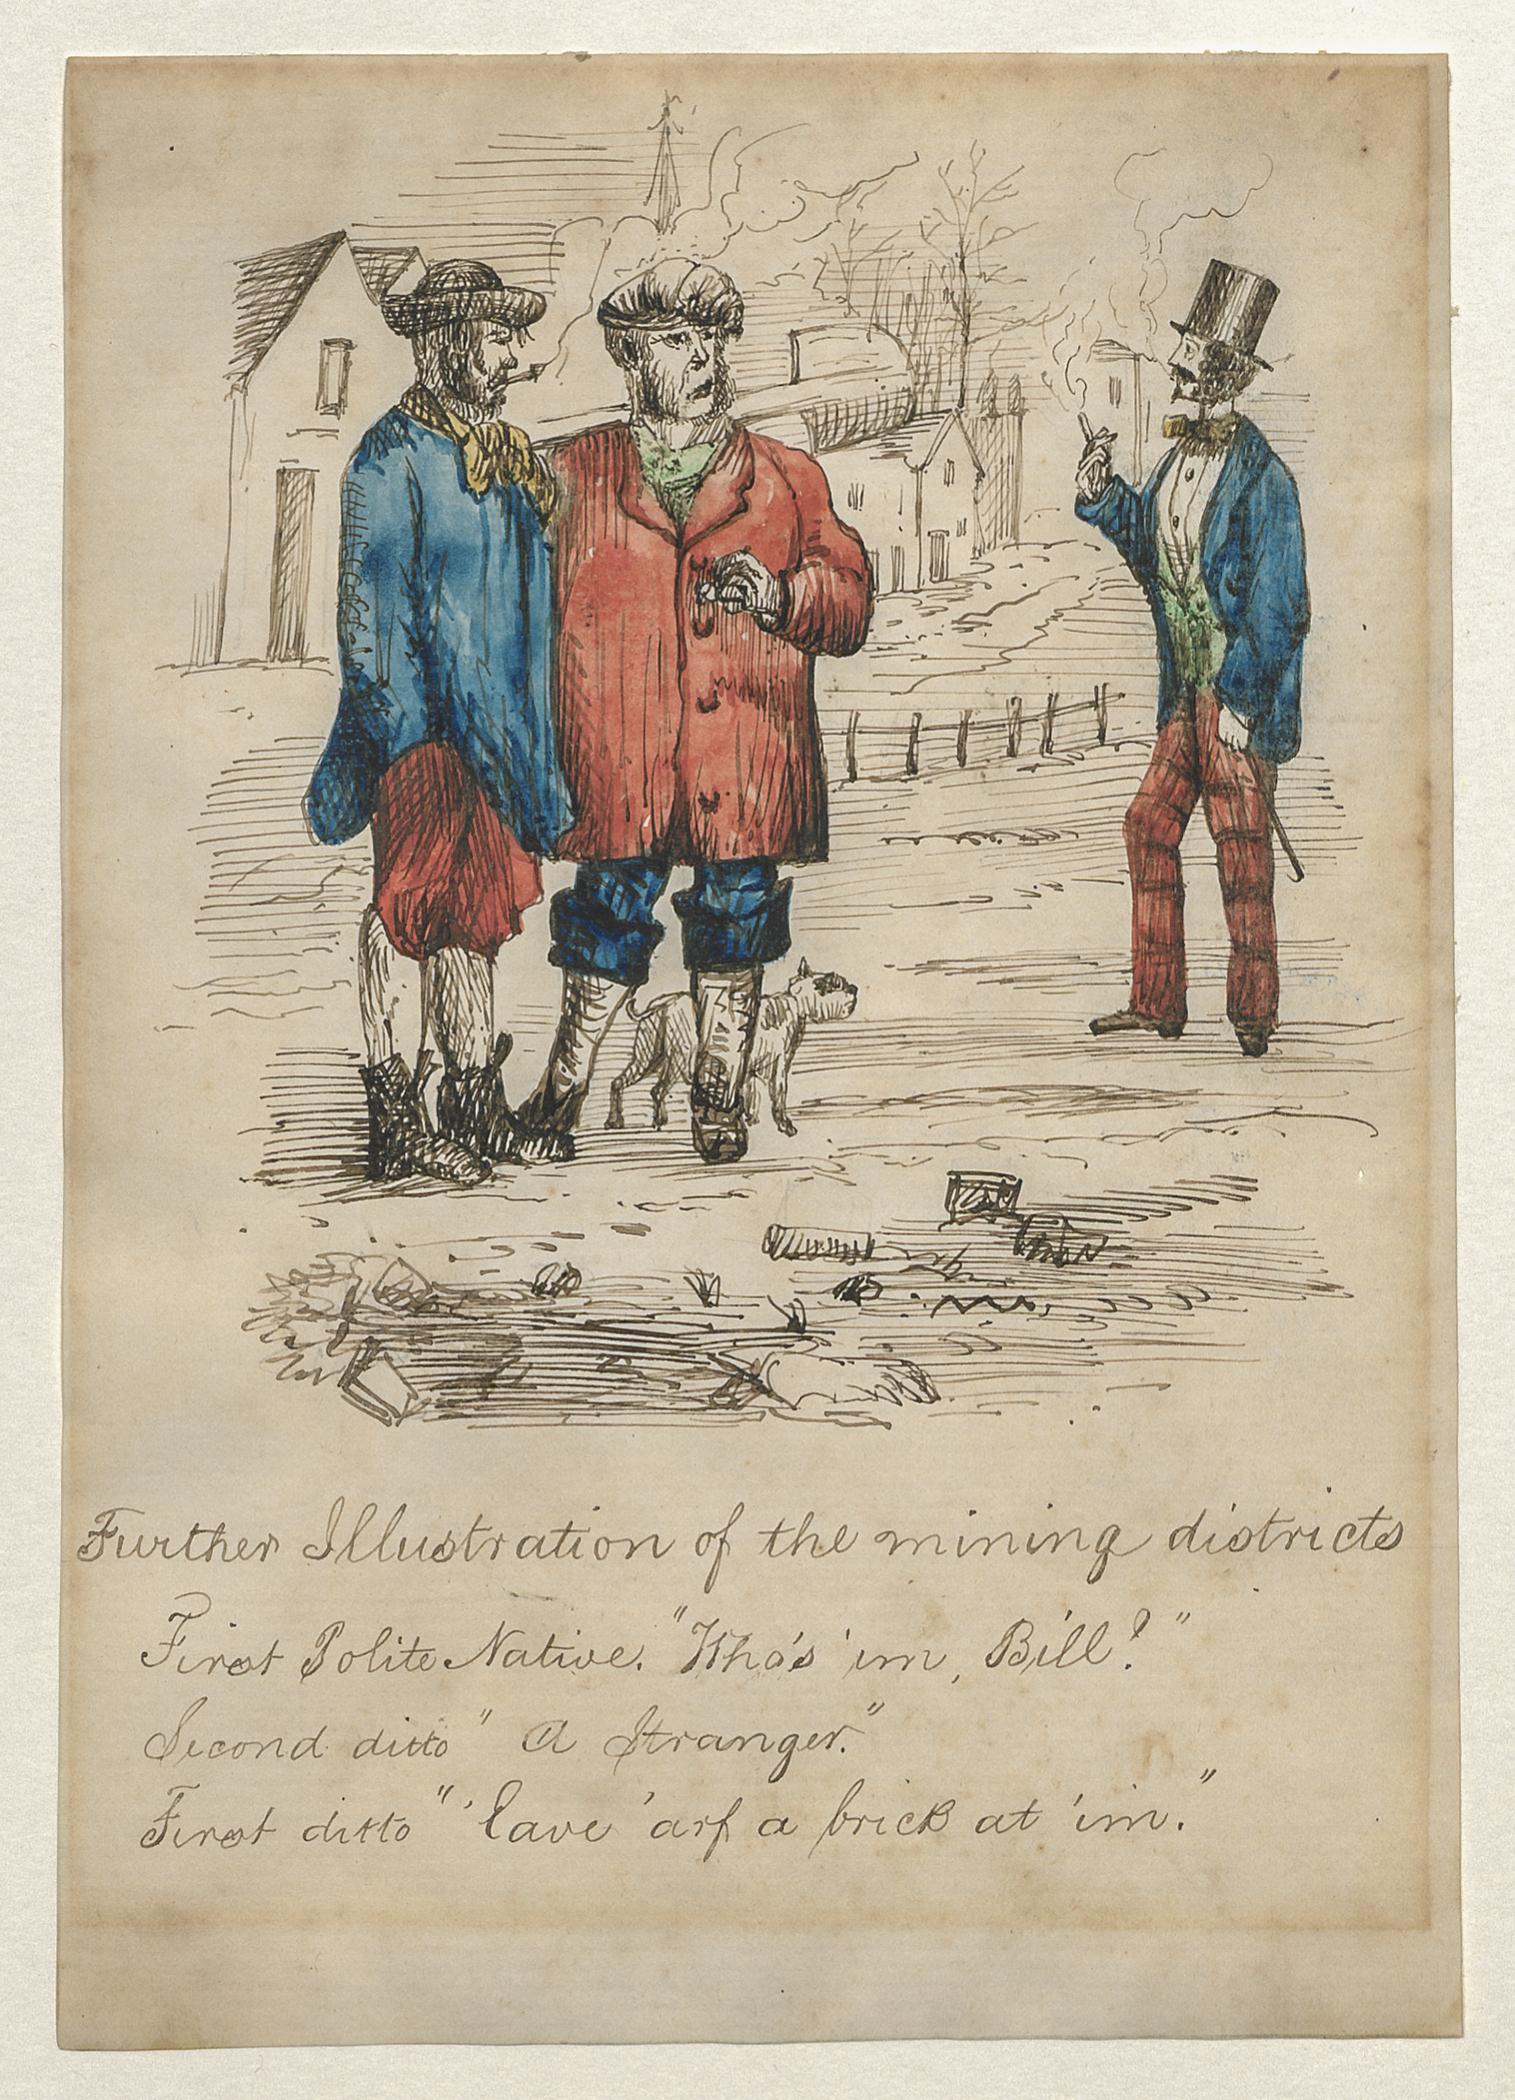 Further Illustration of the mining districts
First Polite Native. "Who's 'im, Bill?"
Second ditto " A Stranger."
First ditto " 'Eave 'arf a brick at 'im."